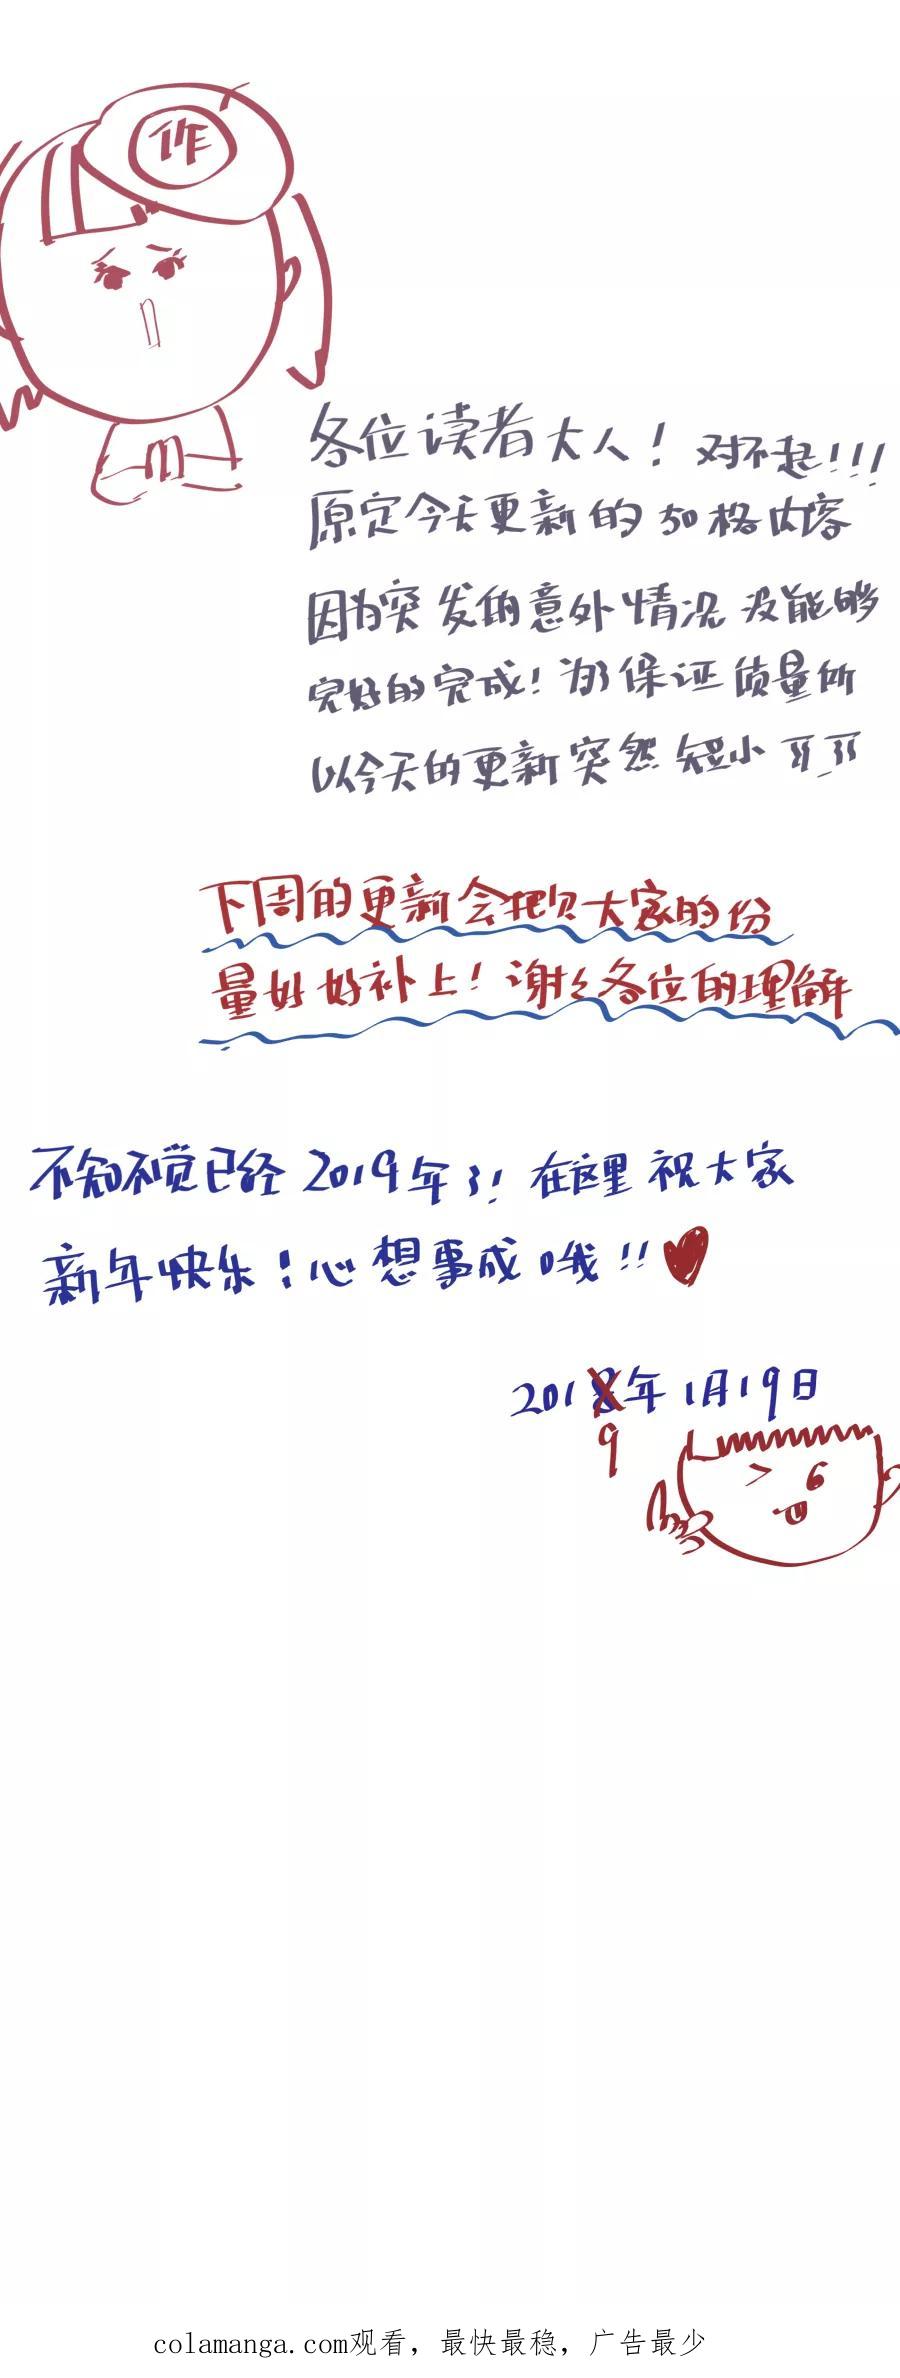 作
各位读者大人！对不起!!!
原定今天更新的50格内容
因为突发的意外情况没能够
完好的完成！为了保证质量所
以今天的更新突然短小ㄒ_ㄒ
下周的更新会把欠大家的份
量好好补上！谢谢各位的理解
不知不觉已经2019年了！在这里祝大家
新年快乐！心想事成哦!!
2018年1月19日
9
colamanga.com观看，最快最稳，广告最少